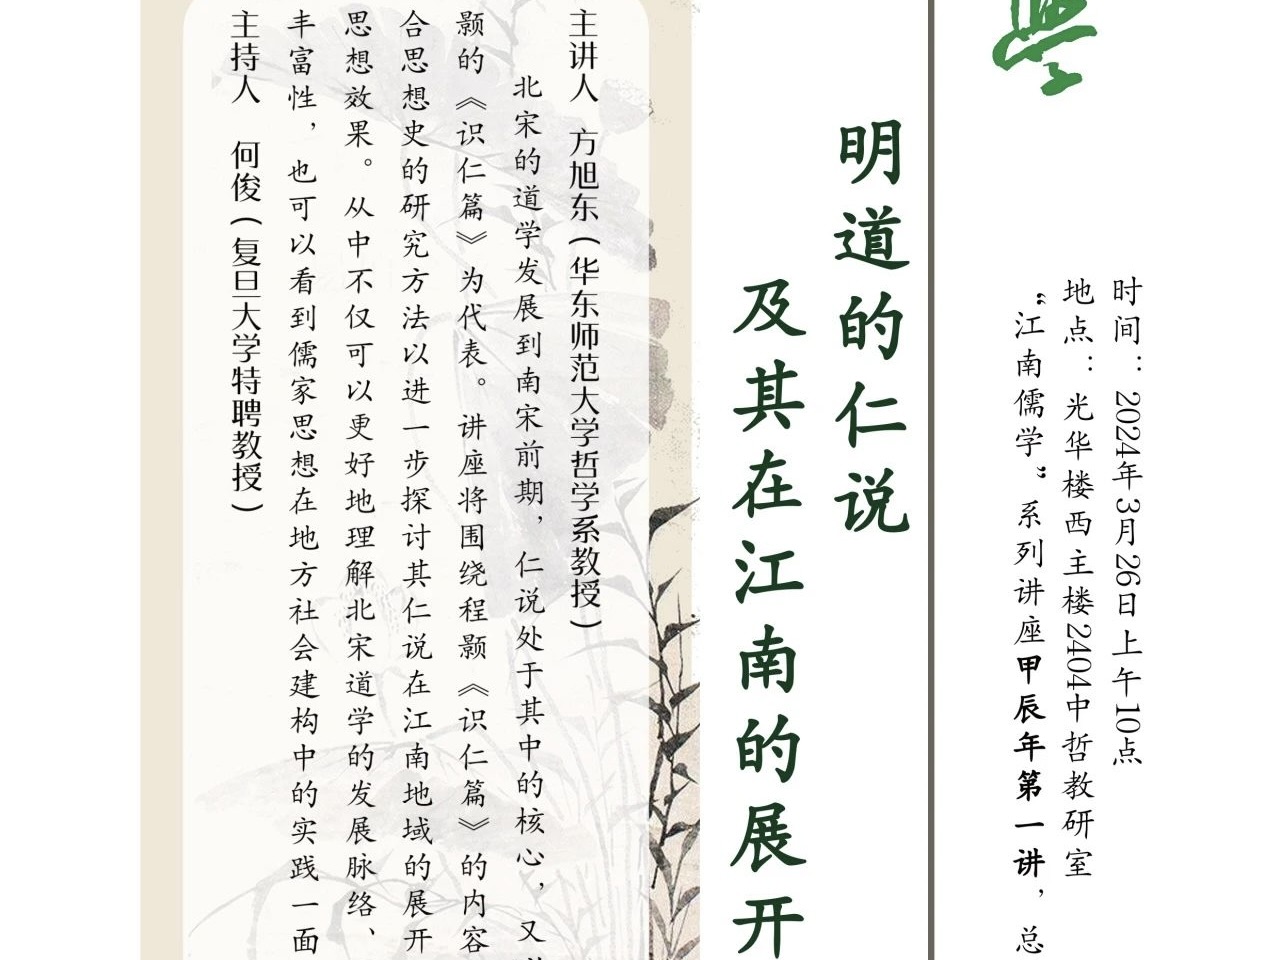 學
时间：2024年3月26日上午10点
地点：光华楼西主楼2404中哲教研室
“江南儒学”系列讲座甲辰年第一讲，总
明道的仁说
及其在江南的展开
主讲人 方旭东（华东师范大学哲学系教授）
北宋的道学发展到南宋前期，仁说处于其中的核心，又
颢的《识仁篇》为代表。讲座将围绕程颢《识仁篇》的内容
合思想史的研究方法以进一步探讨其仁说在江南地域的展开
思想效果。从中不仅可以更好地理解北宋道学的发展脉络、
丰富性，也可以看到儒家思想在地方社会建构中的实践一面
主持人 何俊（复旦大学特聘教授）